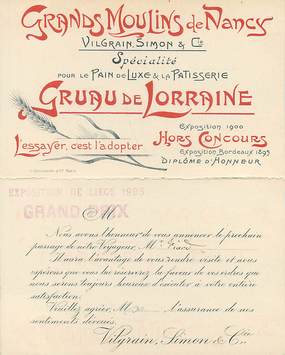 GRANDS MOULINS de NANCY
VILGRAIN, SIMON & Cie
Spécialité
POUR LE PAIN DE LUXE & LA PATISSERIE
GRUAU DE LORRAINE
Exposition 1900
HORS CONCOURS
L'essayer, c'est l'adopter
Exposition Bordeaux 1895
DIPLÔME D'HONNEUR
EXPOSITION DE LIEGE 1905
GRAND PRIX
M
Nous avons l'honneur de vous annoncer le prochain
passage de notre Voyageur Mr
Il aura l'avantage de vous rendre visite et nous
espérons que vous lui réserverez la faveur de vos ordres que
nous serons toujours heureux d'exécuter à votre entière
satisfaction.
Veuillez agréer, M l'assurance de nos
sentiments dévoués.
Vilgrain, Simon & Cie.